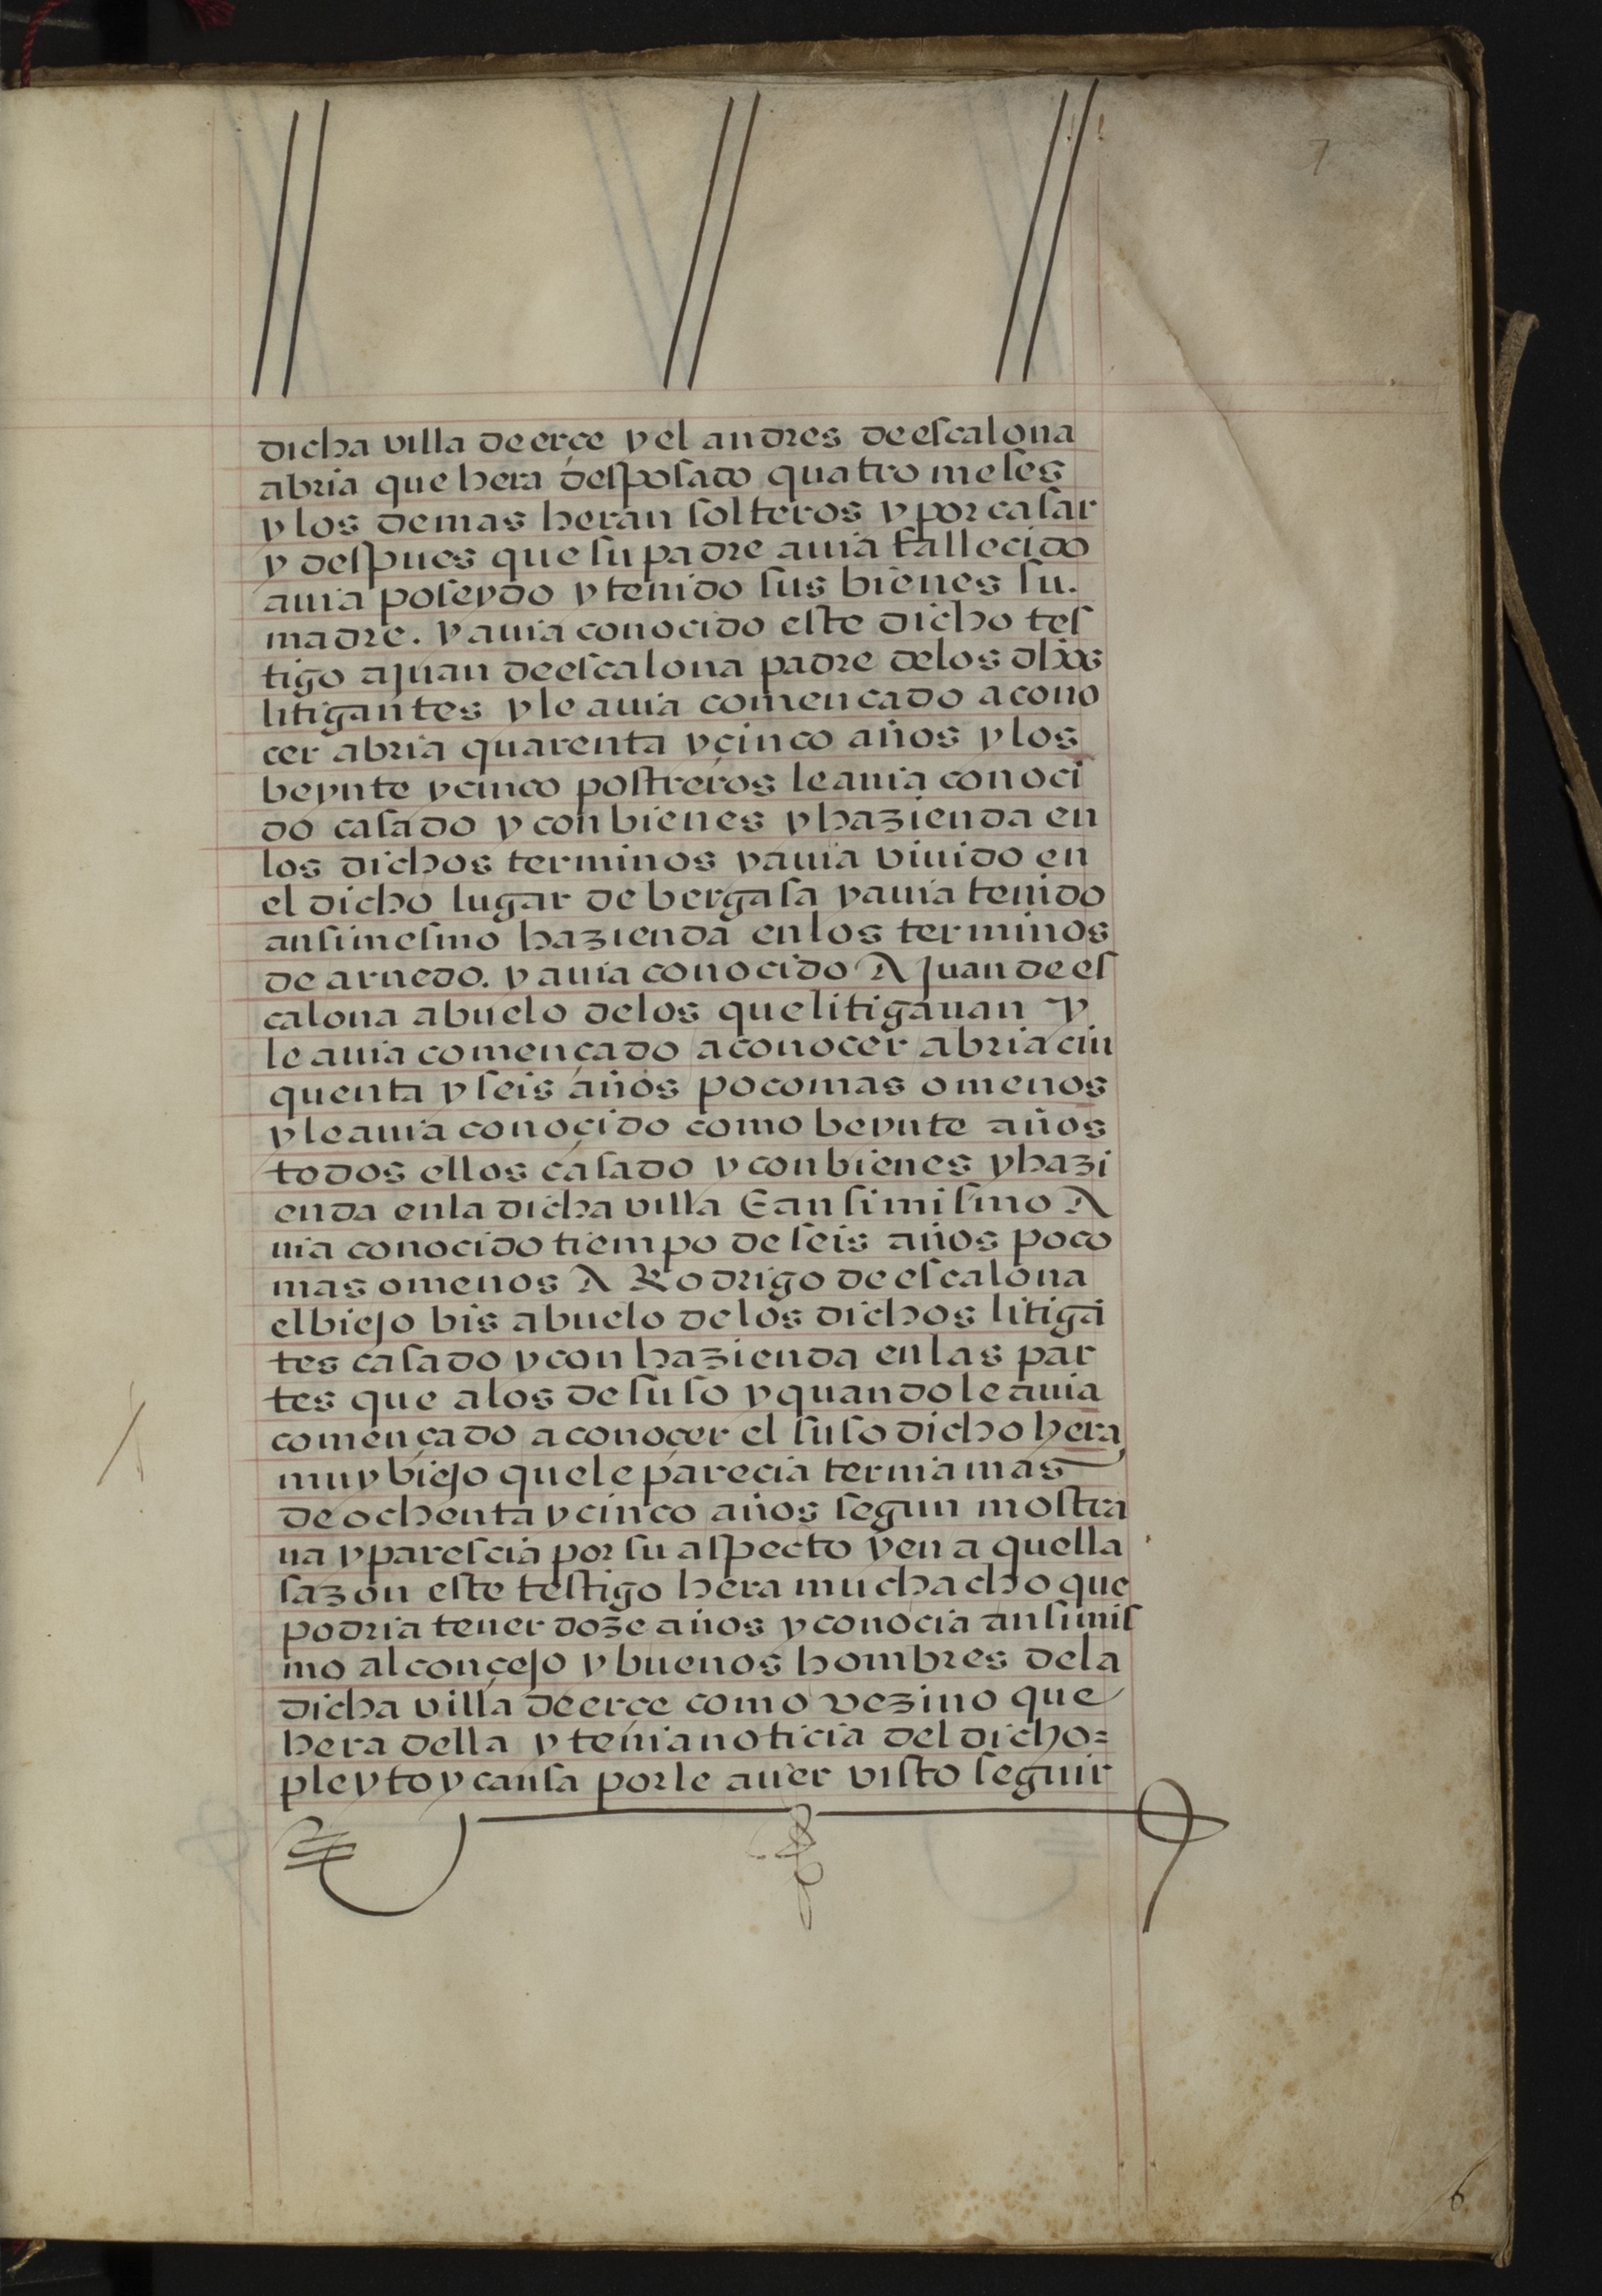 7
dicha villa de erçe y el andres de escalona
abria que hera desposado quatro meses
y los demas heran solteros y por casar
y despues que su padre auia fallecido
auia poseydo y tenido sus bienes su.
madre. y auia conocido este dicho tes
tigo a juan de escalona padre de los dhos
litigantes y le auia comencado a cono
cer abria quarenta y çinco años y los
beynte y cinco postreros le auia conoci
do casado y con bienes y hazienda en
los dichos terminos y auia viuido en
el dicho lugar de bergasa y auia tenido
ansimesmo hazienda en los terminos
de arnedo. y auia conocido A Juan de es
calona abuelo de los que litigauan y
le auia començado a conocer abria cin
quenta y seis años poco mas o menos
y le auia conoçido como beynte años
todos ellos casado y con bienes y hazi
enda en la dicha villa E ansimismo A
uia conocido tiempo de seis años poco
mas o menos A Rodrigo de escalona
el biejo bis abuelo de los dichos litigã
tes casado y con hazienda en las par
tes que a los de suso y quando le auia
començado a conoçer el suso dicho hera
muy biejo que le parecia ternia mas
de ochenta y cinco años segun mostra
ua y parescia por su aspecto y en aquella
sazon este testigo hera muchacho que
podria tener doze años y conocia ansimis
mo al conçejo y buenos hombres de la
dicha villa de erçe como vezino que
hera della y tenia noticia del dicho=
pleyto y causa por le auer visto seguir
6